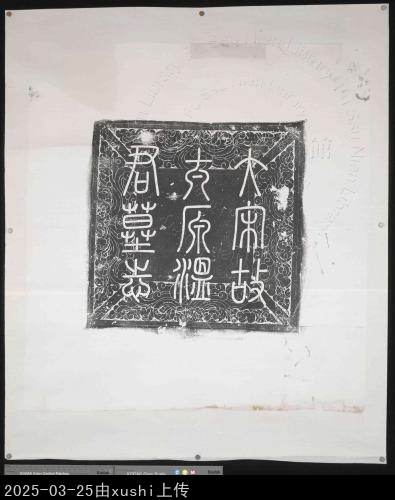 大宋故
太原溫
君墓志
2025-03-25由xushi上传